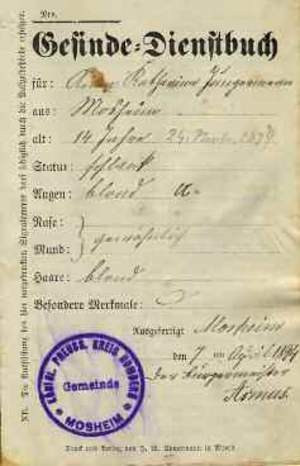 Nro.
Gesinde-Dienstbuch
für: Anna Katharina Jungermann
aus: Mosheim
alt: 14 Jahre 24.
Statur: schlank
Augen: blond
Nase:
Mund: gewöhnlich
Haare: blond
Besondere Merkmale:
Ausgefertigt Mosheim
den 7 April 189
der Bürgermeister
KÖNIGL. PREUSS. KREIS HOMBERG
Gemeinde
MOSHEIM
NB. Die Ausfüllung des hier vorgedruckten Signalements darf lediglich durch die Polizeibehörde erfolgen.
Druck und Verlag von